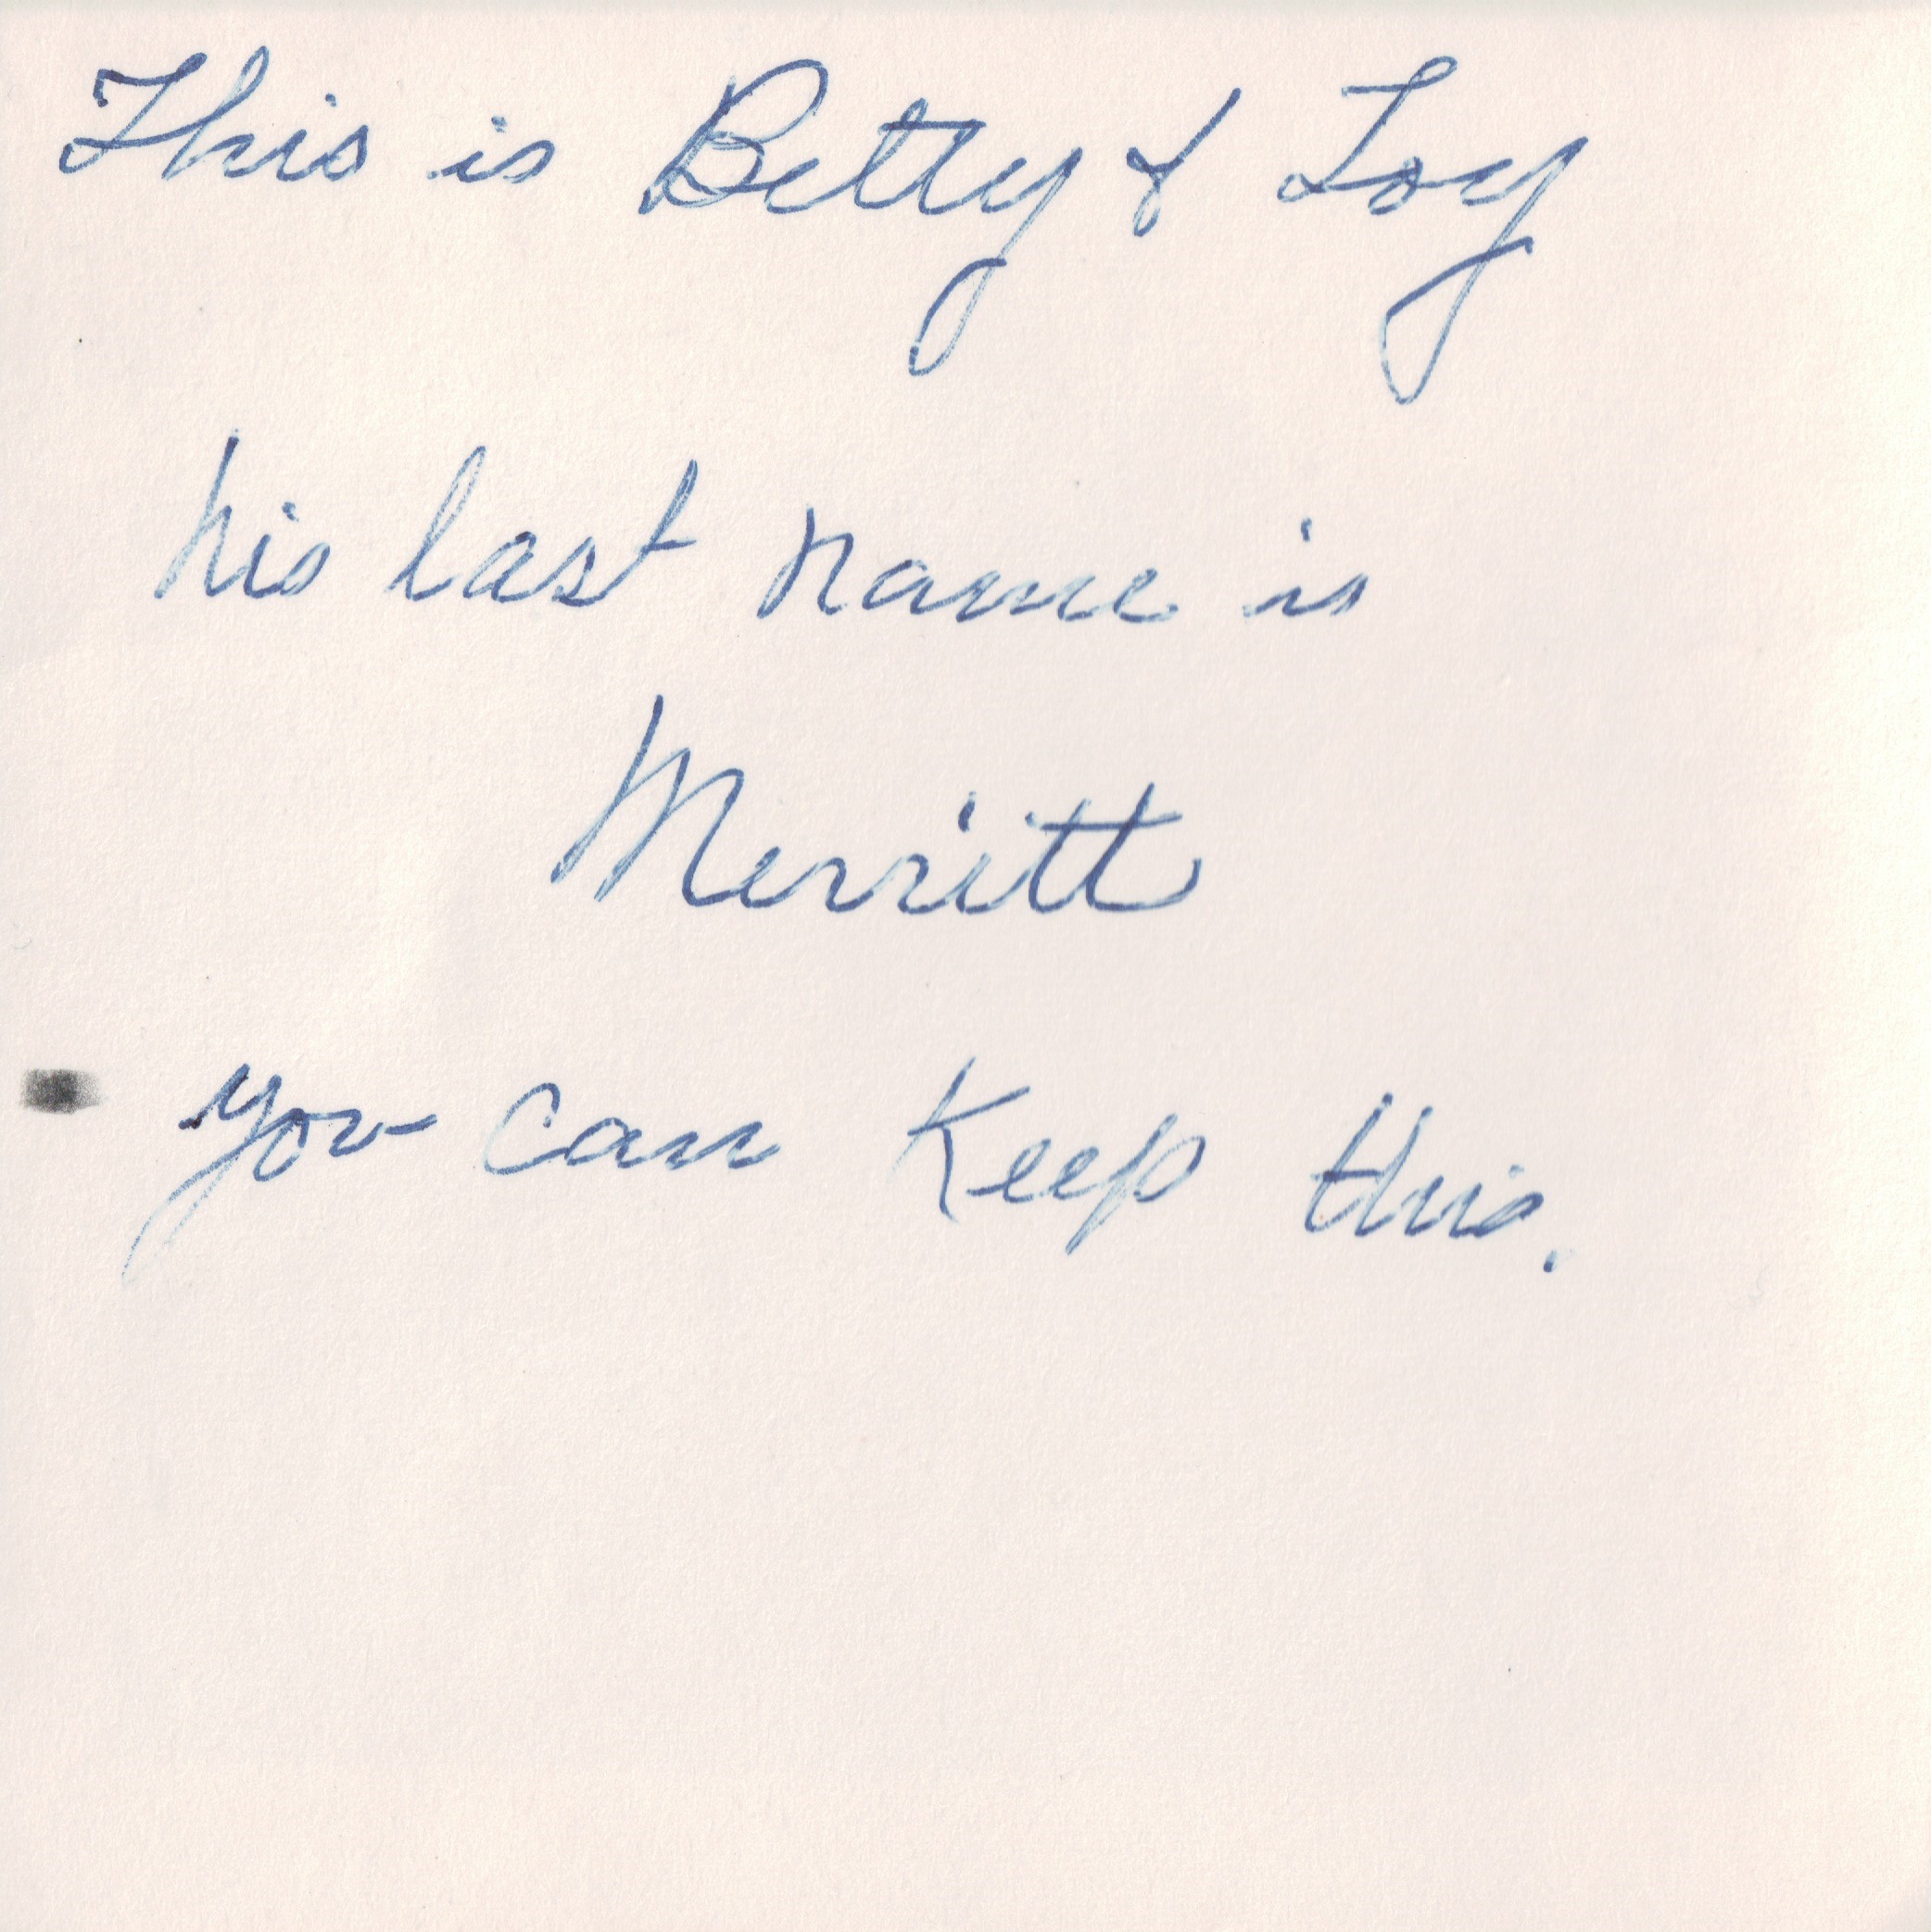 This is Betty & Loy
his last name is
Merritt
you can Keep this.